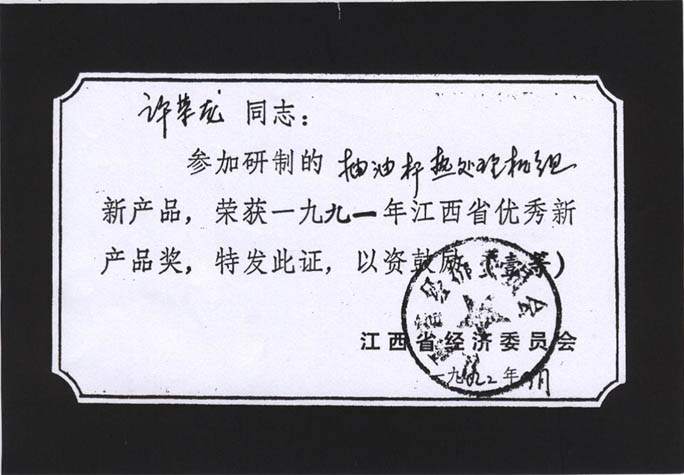 许荣龙 同志：
参加研制的 抽油杆热处理机组
新产品，荣获一九九一年江西省优秀新
产品奖，特发此证，以资鼓励（壹等）
江西省经济委员会
一九九二年 月